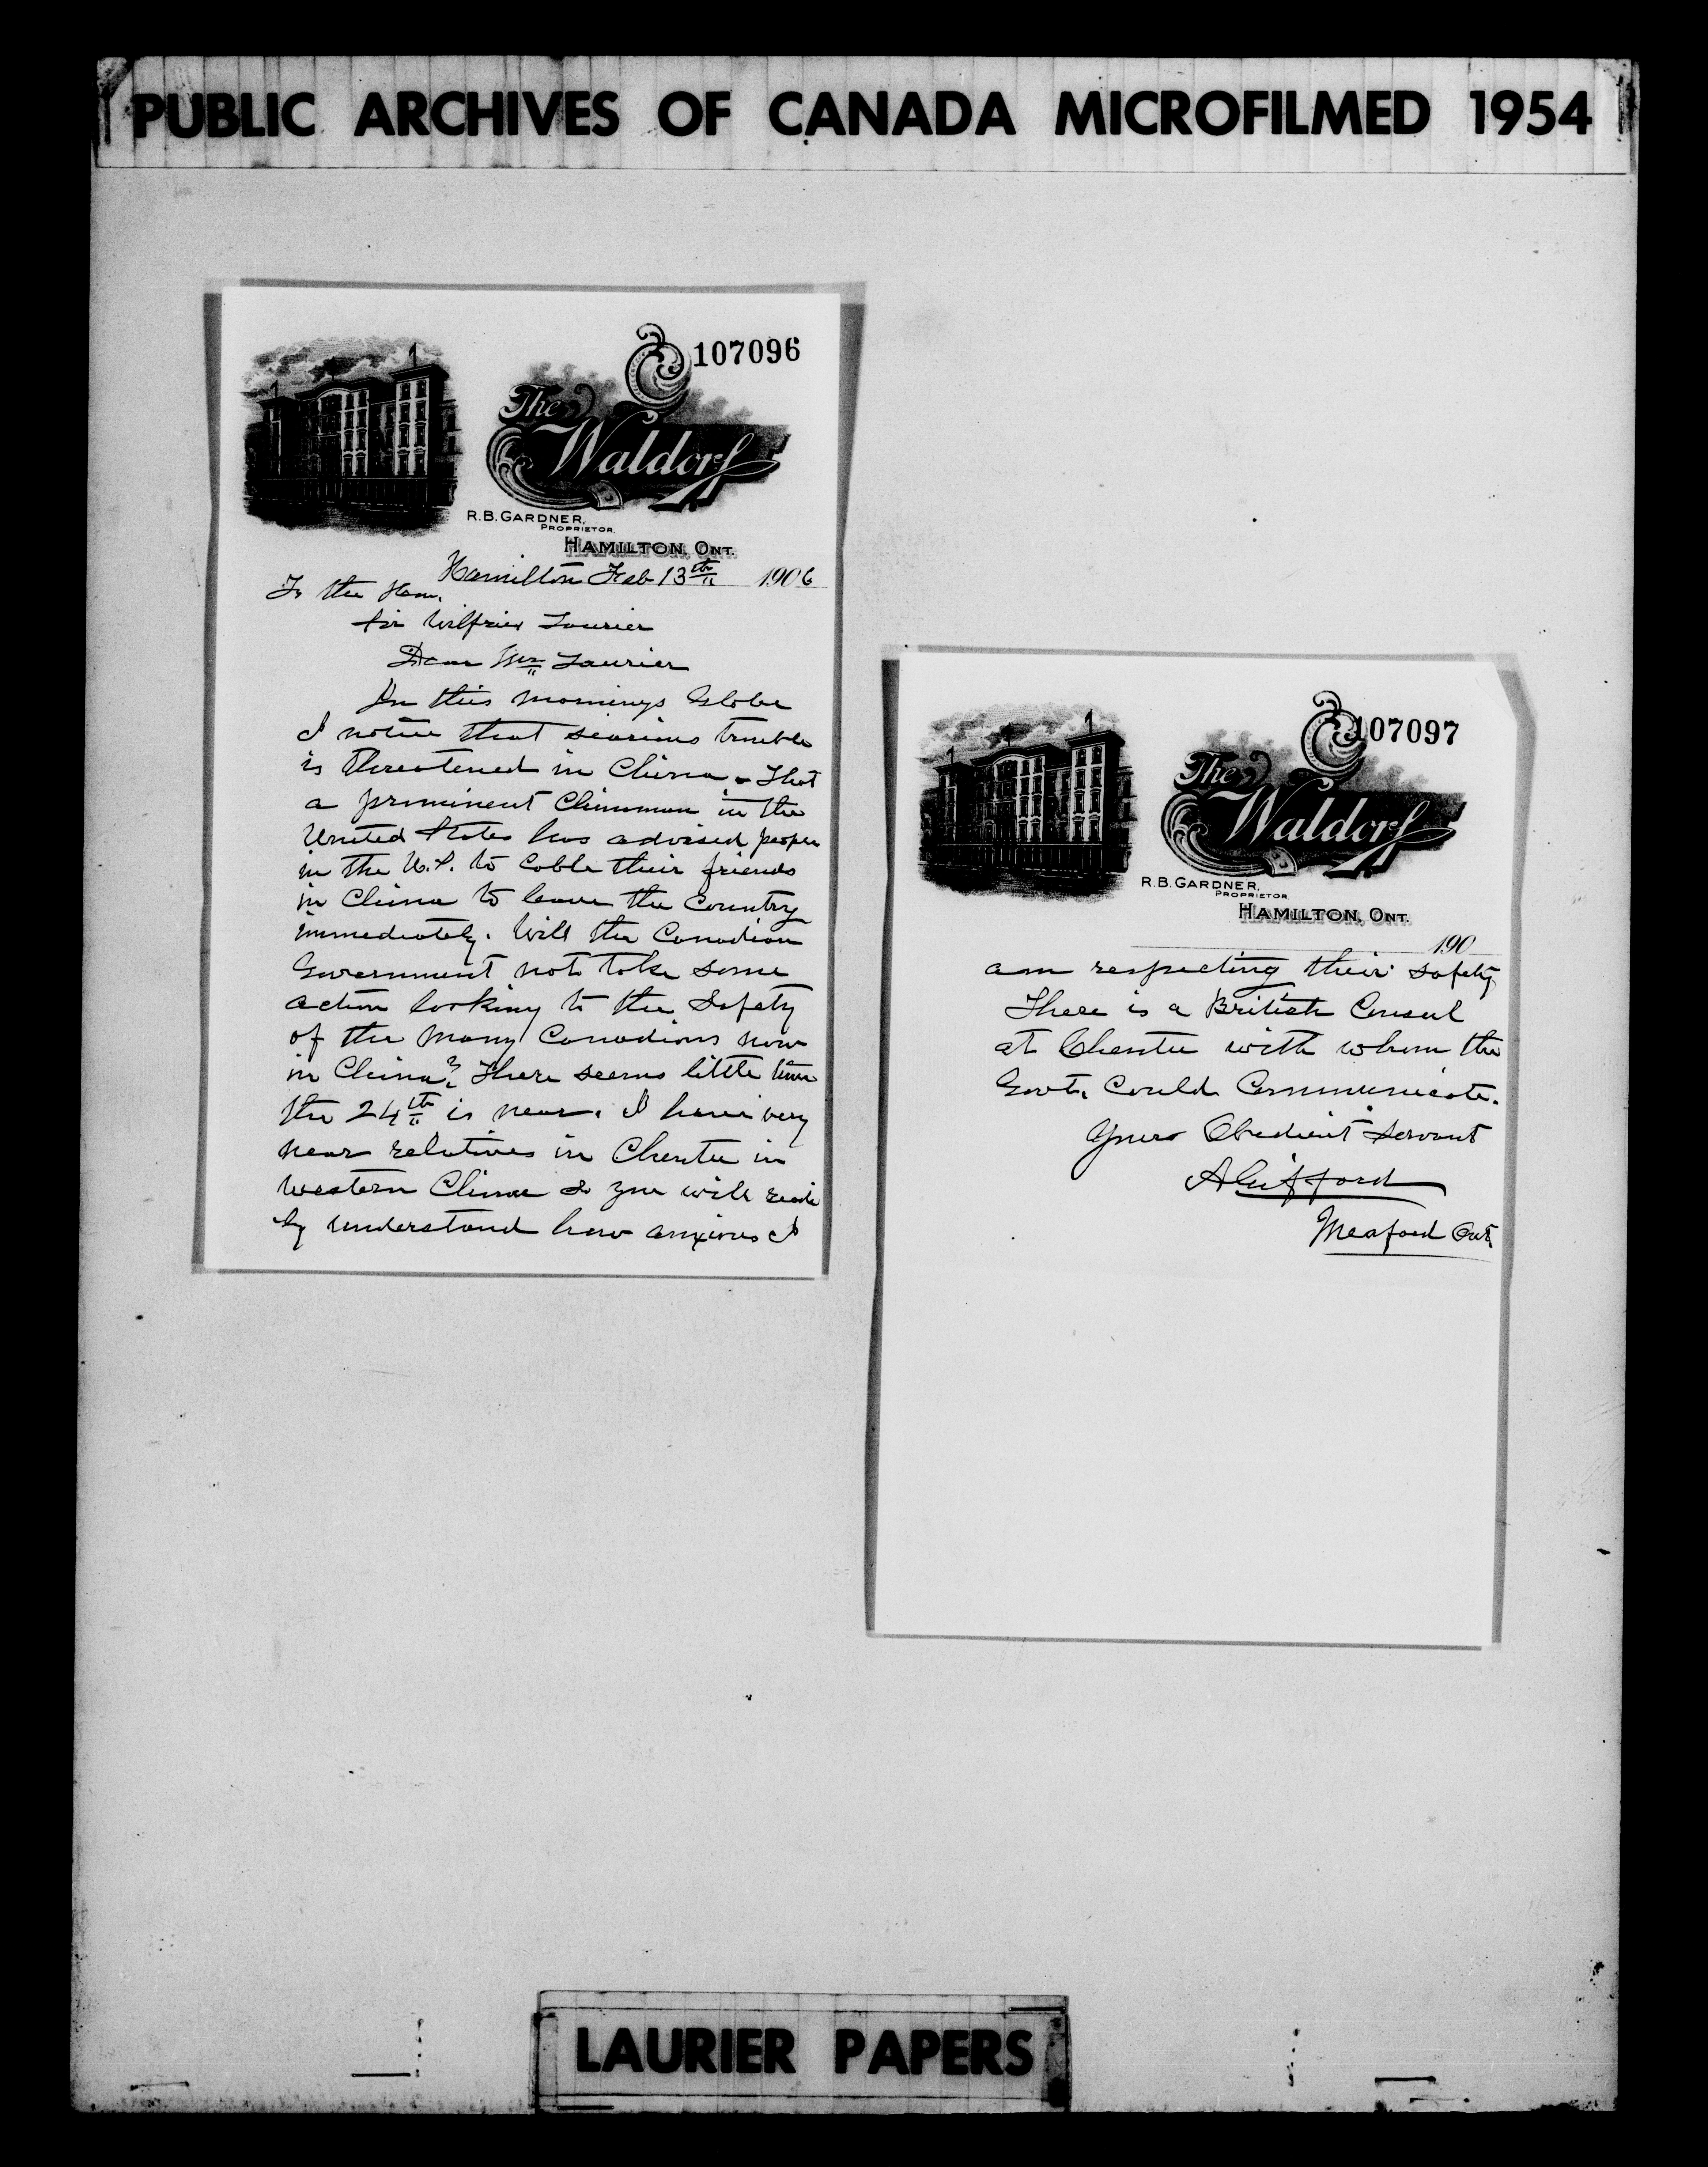 PUBLIC ARCHIVES OF CANADA MICROFILMED 1954
107096
The
Waldorf
R.B. GARDNER,
PROPRIETOR
HAMILTON, ONT.
Hamilton Feb 13th 1906
To the Hon.
Sir Wilfrid Laurier
Dear Mr Laurier
In this mornings Globe
I notice that searious trouble
is threatened in China. That
a prominent Chinaman in the
United States has advised people
in the U.S. to cable their friends
in China to leave the Country
immediately. Will the Canadian
Government not take some
action looking to the Safety
of the many Canadians now
in China? There seems little time
the 24th is near. I have very
near relatives in Chentu in
Western China so you will readi
ly understand how anxious I
107097
The
Waldorf
R.B. GARDNER,
PROPRIETOR
HAMILTON, ONT.
190
am respecting their safety
There is a British Consul
at Chentu with whom the
Govt. Could Communicate.
Yours Obedient Servant
Gifford
Meaford Ont
LAURIER PAPERS